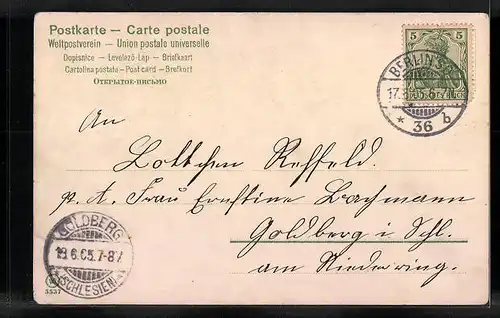 Postkarte — Carte postale
Weltpostverein — Union postale universelle
Dopisnice — Levelező-Lap — Briefkaart
Cartolina postale — Post card — Brefkort
ОТКРЫТОЕ-ПИСЬМО
5 5
BERLIN S.
17.6.05.6-7
* 36 b
An
Lottchen Reffeld.
p. A. Frau Ernstine Bachmann
Goldberg i Schl.
am Niederring.
GOLDBERG
18.6.05.7-8V
(SCHLESIEN)
5557